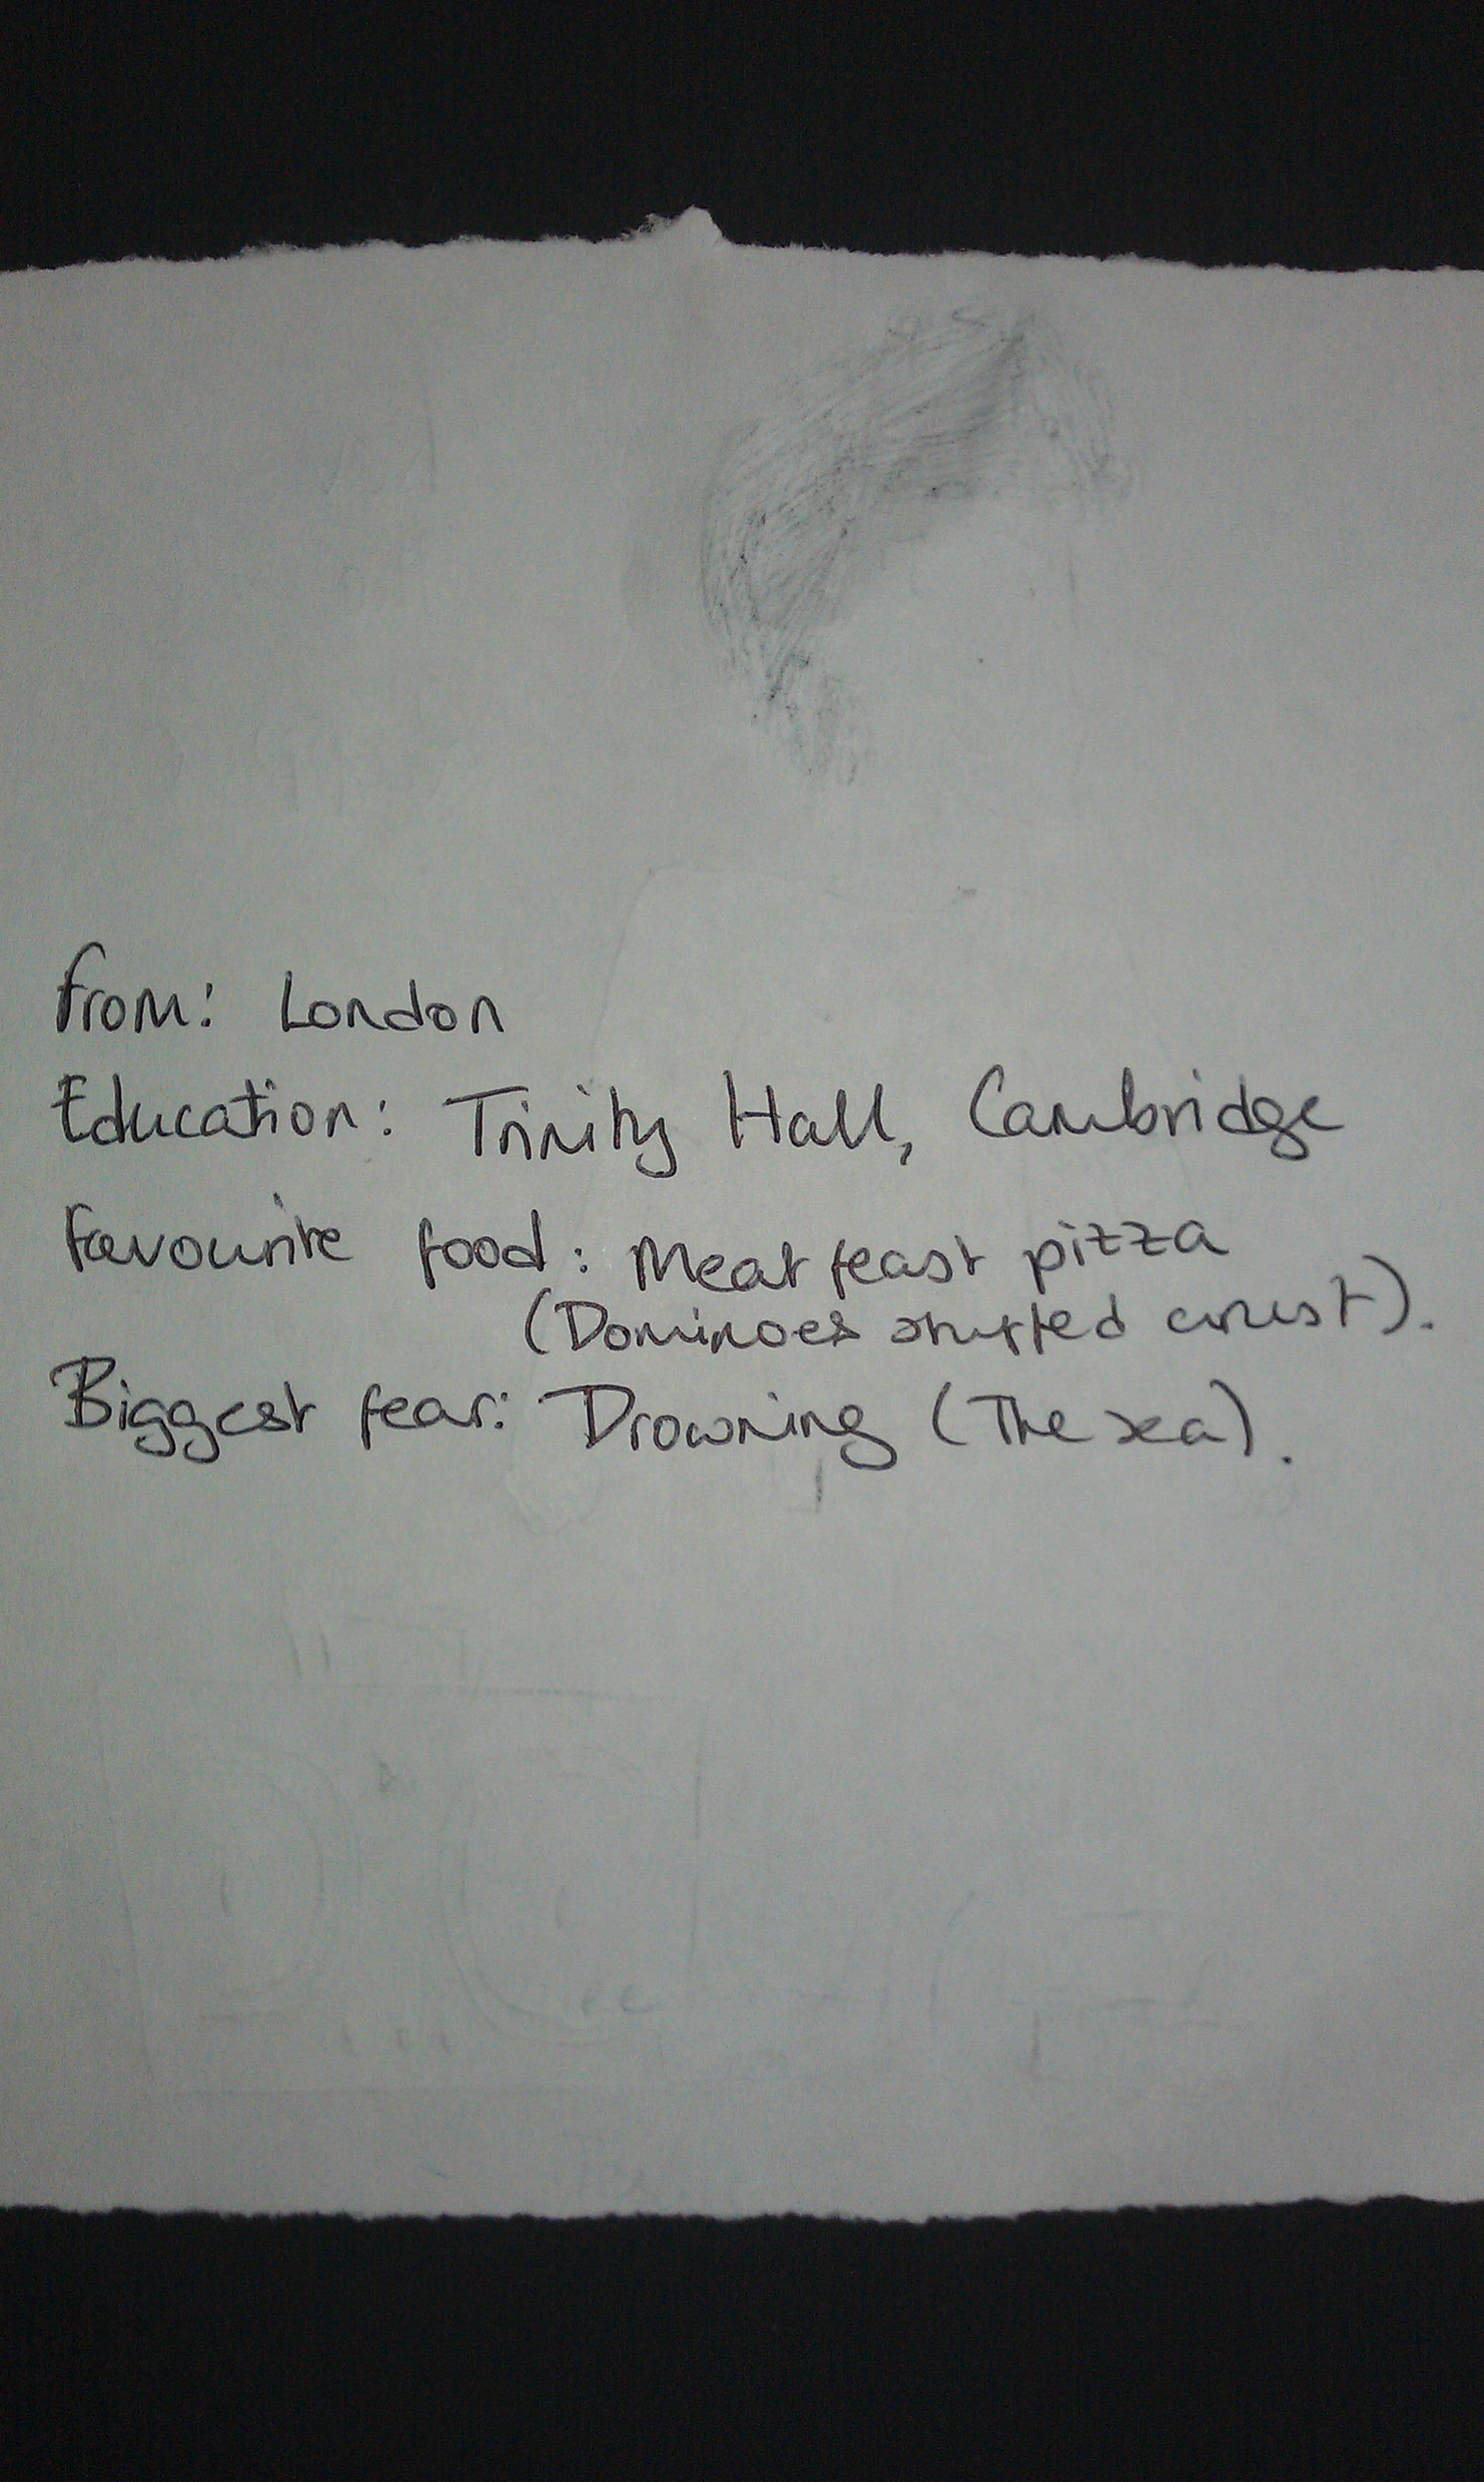 From: London
Education: Trinity Hall, Cambridge
Favourite food: Meat feast pizza
(Dominoes stuffed crust).
Biggest fear: Drowning (The sea).